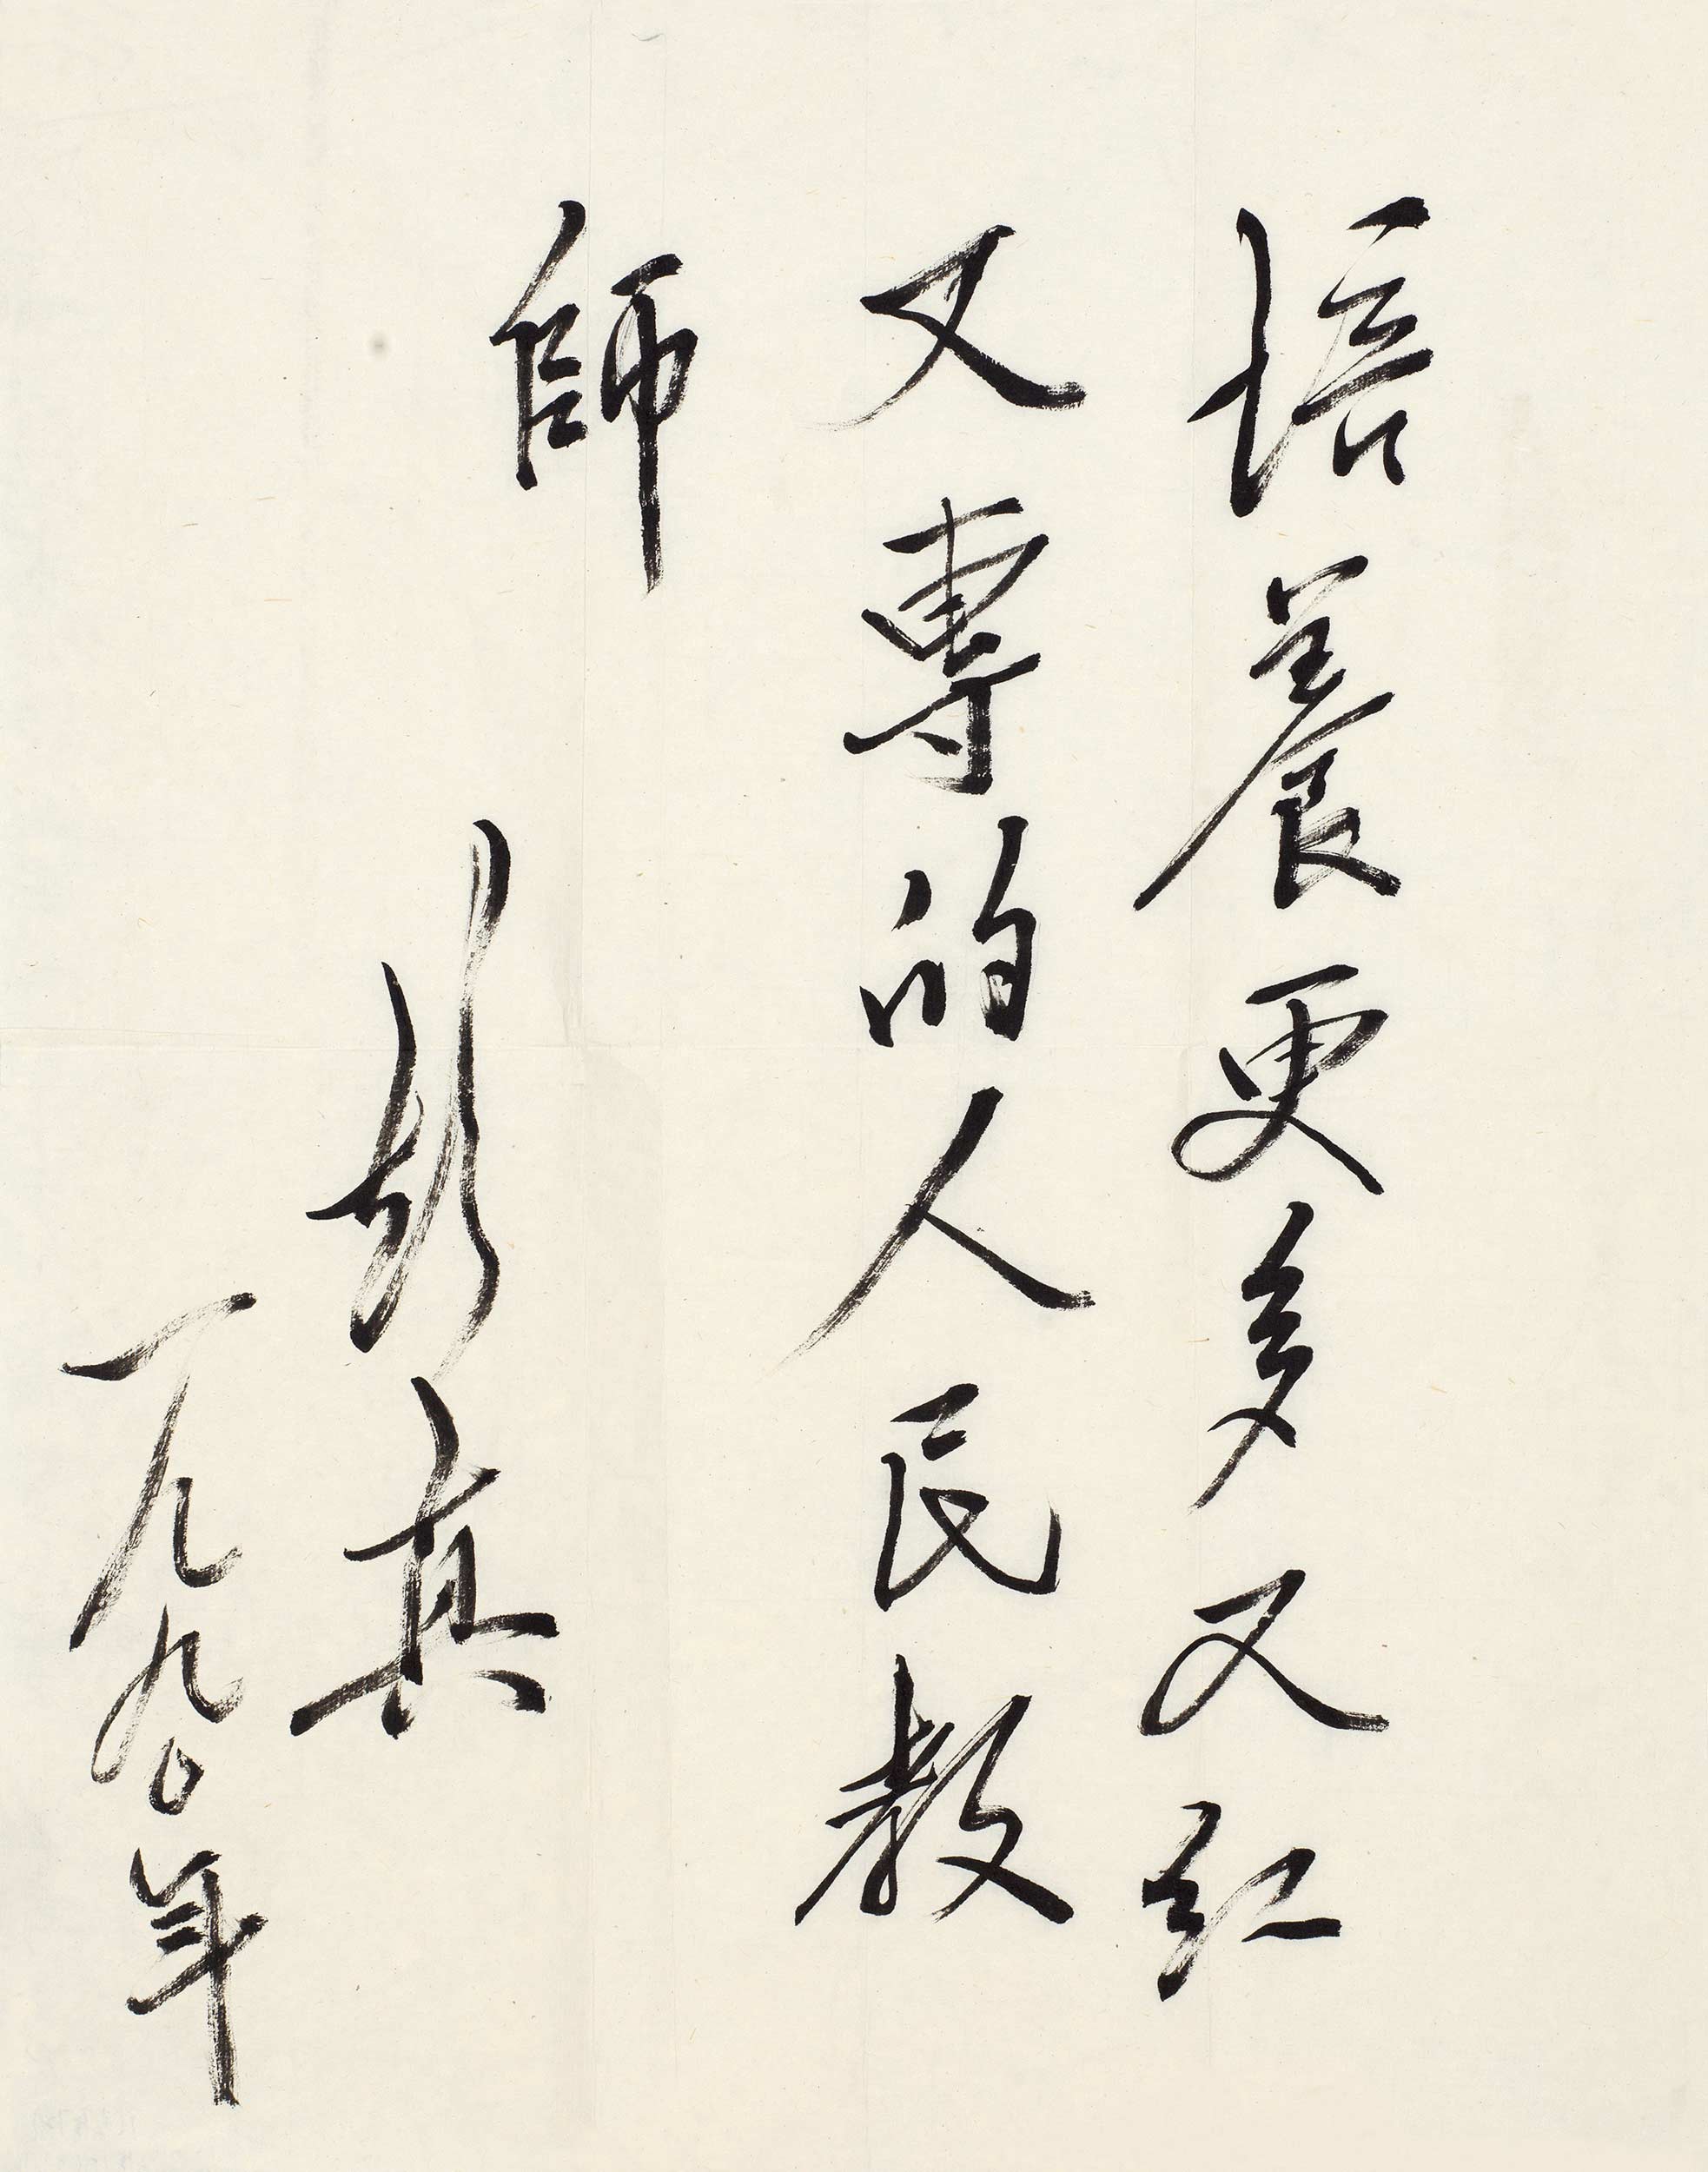 培養更多又红
又專的人民教
師
彭真
一九九〇年